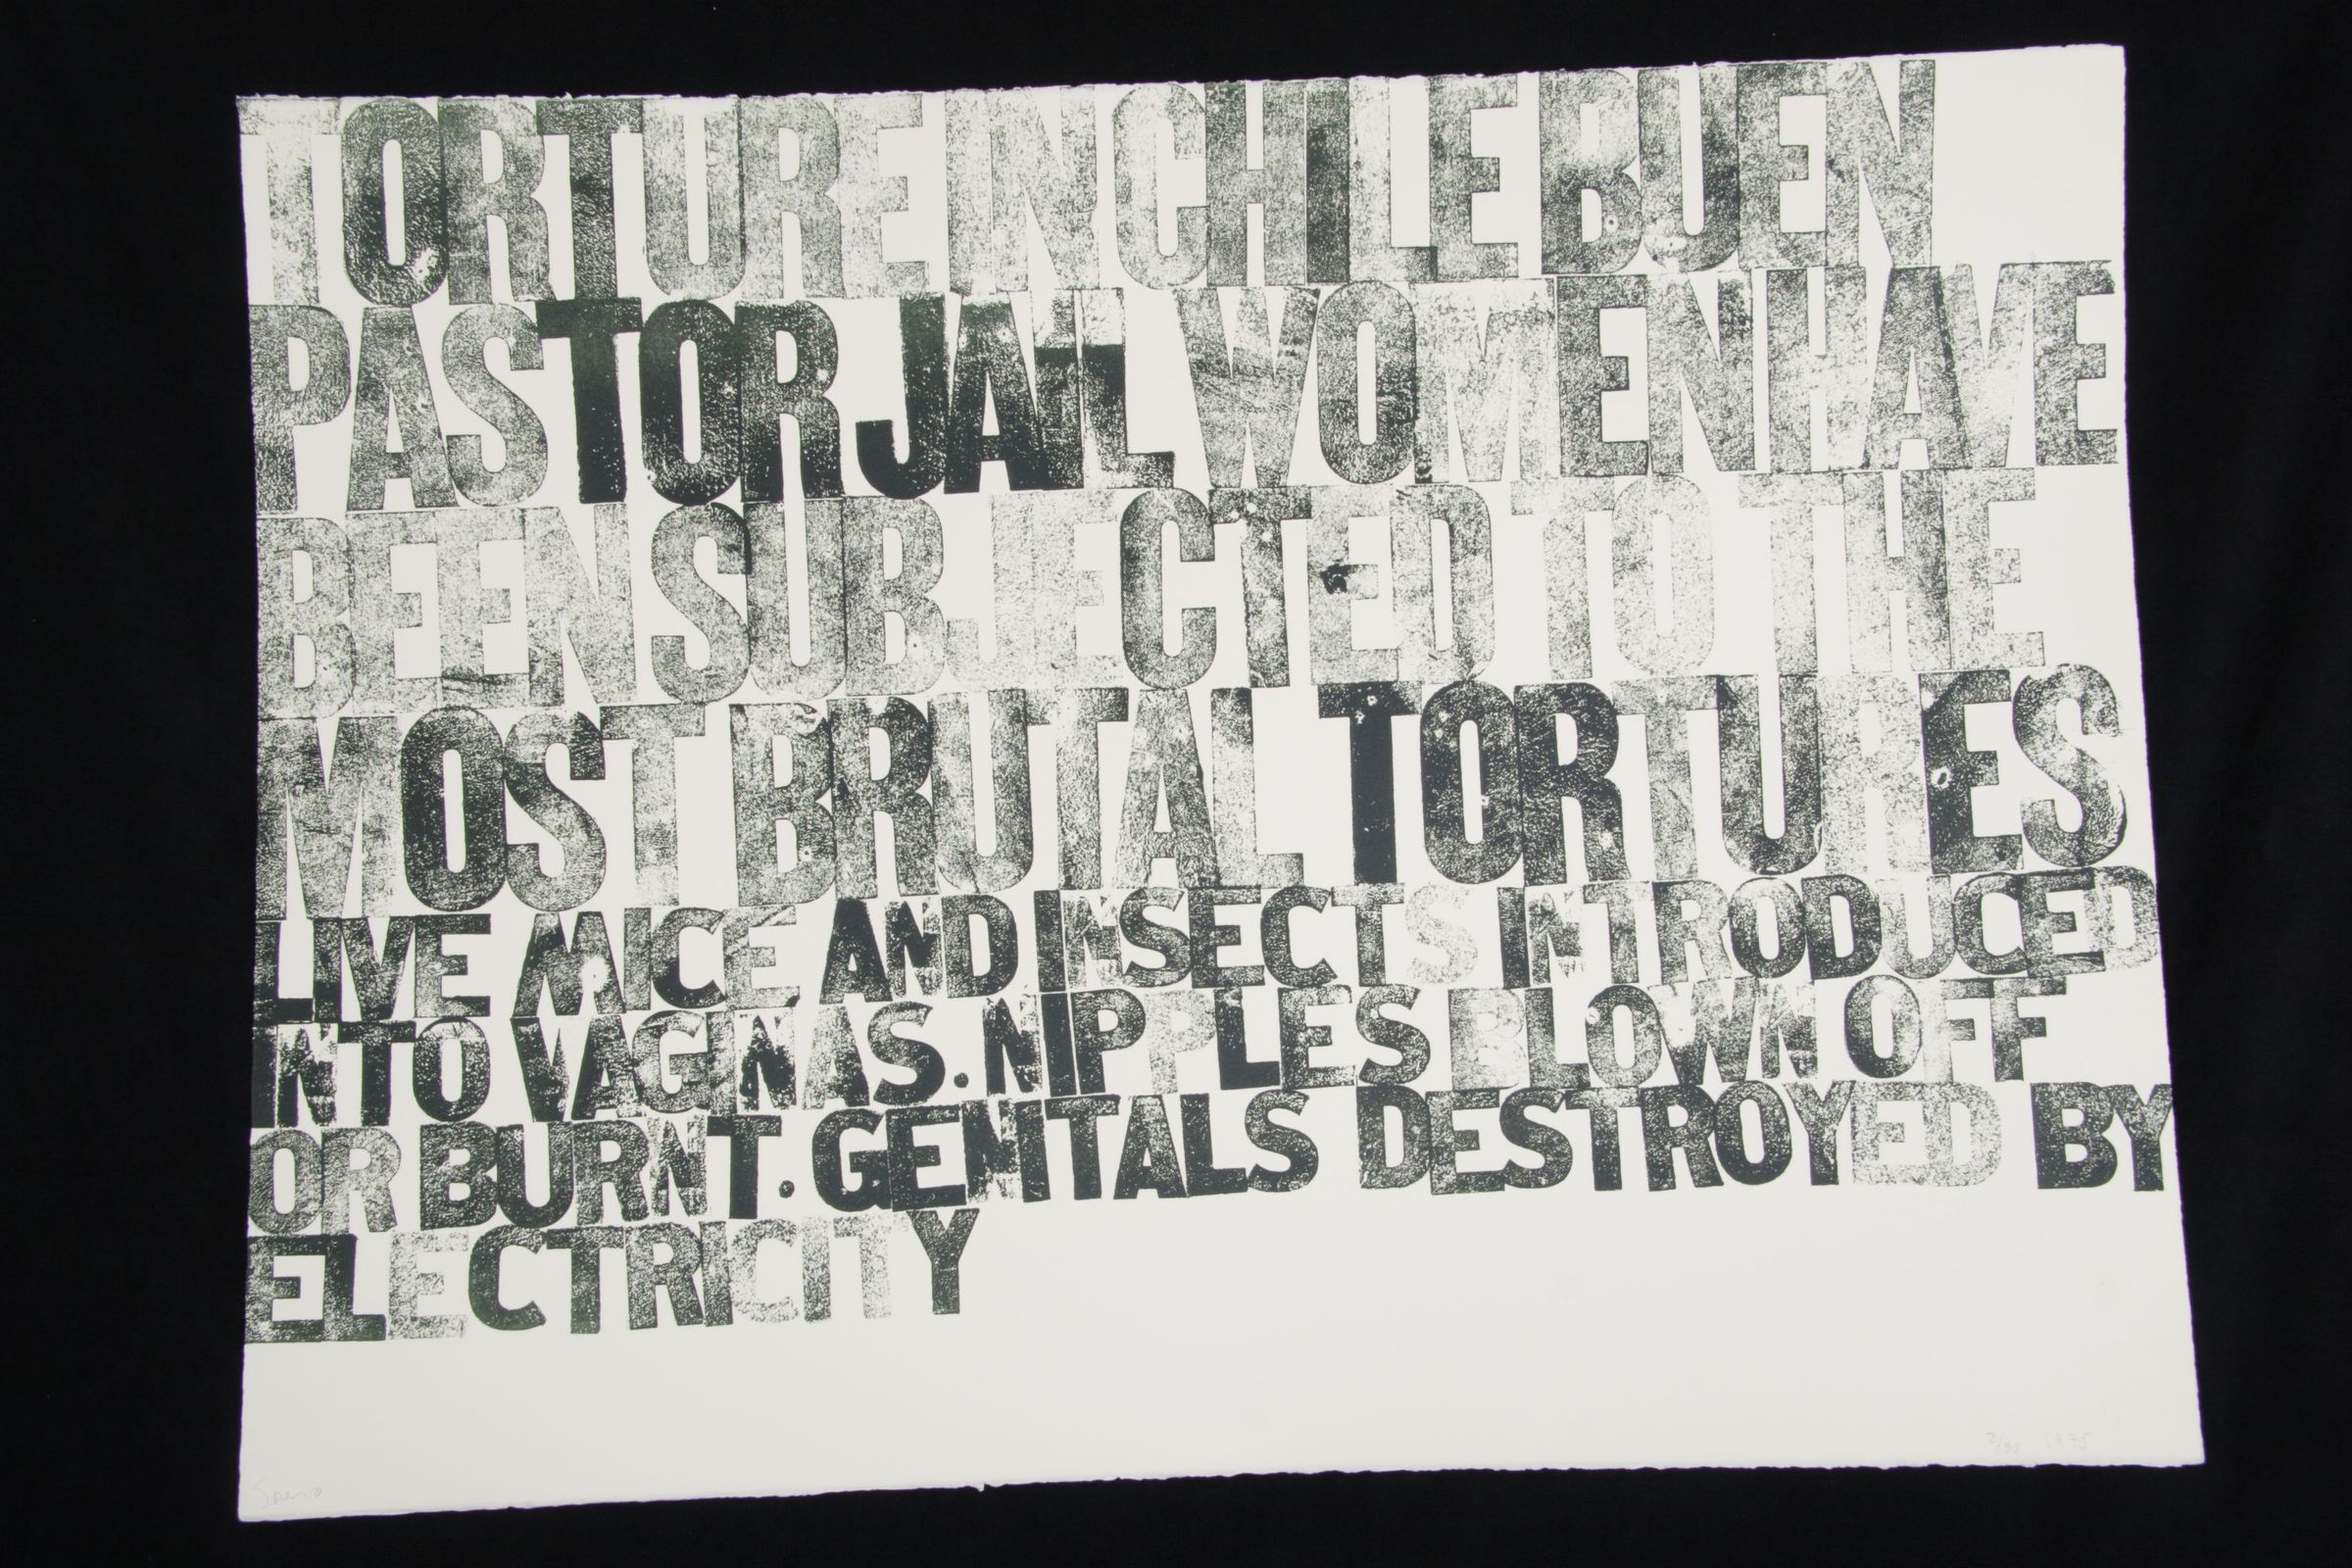 TORTURE IN CHILE BUEN
PASTOR JAIL WOMEN HAVE
BEEN SUBJECTED TO THE
MOST BRUTAL TORTURES
LIVE MICE AND INSECTS INTRODUCED
INTO VAGINAS. NIPPLES BLOWN OFF
OR BURNT. GENITALS DESTROYED BY
ELECTRICITY
Spero
1975